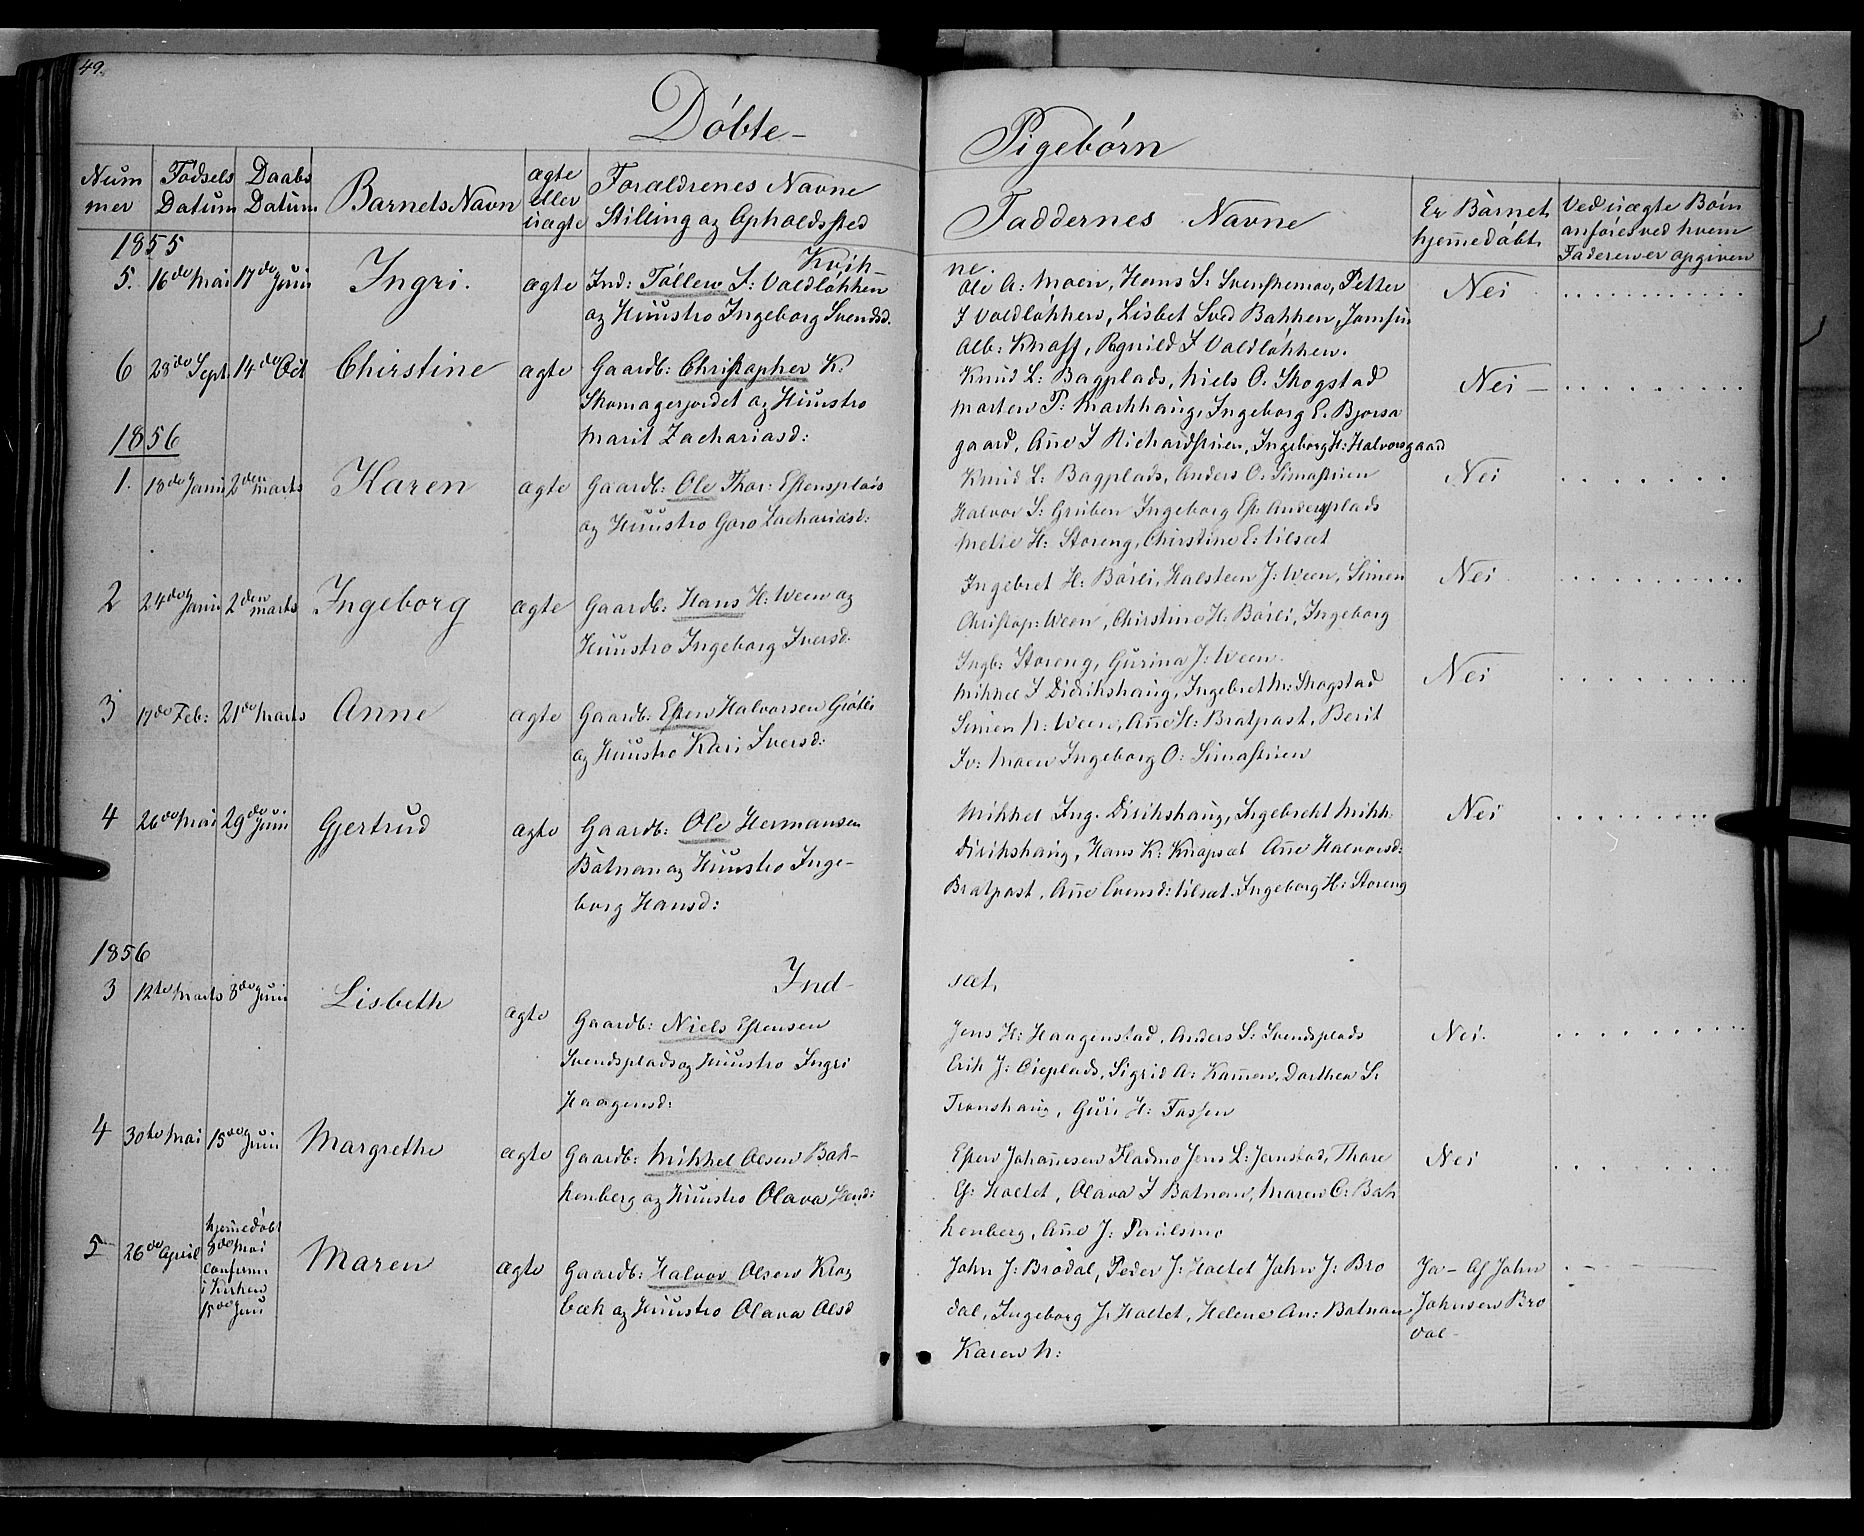 49.
Döbte- Pigebörn
Num
mer
Födsels
Datum
Daabs
Datum
Barnets Navn
ægte
eller
uægte
Forældrenes Navne
Stilling og Opholdssted
Faddernes Navne
Er Barnet
hjemedöbt
Ved uægte Börn
anföres ved hvem
Faderen er opgiven
1855
Kvik-
ne.
5. 16de Mai 17de Juni Ingri. ægte Ind: Töllew S: Voldlökken
og Huustro Ingeborg Svendsd.
Ole A: Moen, Hans S. Svenskemoe, Petter
J Voldlökken, Lisbet Sved Bakken, Jomfru
Alb: Knoff, Ragnild J Voldlökken.
Nei
6 28de Sept 14de Oct Chirstine ægte Gaardb: Christopher K.
Skomagerjordet og Huustro
Marit Zachariasd:
Knud L: Bagplads, Niels O. Skogstad
Morten P: Krachhaug, Ingeborg E. Bjorsa
gaard, Ane J Richardstuen, Ingeborg H: Halvorsgaard
Nei-
1856
1. 18de Janu 2den Marts Karen ægte Gaardb: Ole Thor: Estensplads
og Huustro Goro Zachariasd:
Knud L: Bagplads, Anders O. Simastuen
Halvor S: Gruben Ingeborg Est. Andersplads
Mette H: Storeng, Chirstine E: tilset
Nei
2 24de Janu 2den Marts Ingeborg ægte Gaardb: Hans H: Ween og
Huustro Ingeborg Iversd:
Ingebret H: Börli, Halsteen J: Ween, Simen
Christop: Ween, Chirstine H: Börli, Ingeborg
Ingb: Storeng, Gurina J: Ween.
Nei
3 17de Feb: 21de Marts Anne ægte Gaardb: Esten Halvorsen Giötli
og Huustro Kari Iversd:
Mikkel J Didrikshaug, Ingebret M: Skogstad
Simen N: Ween, Ane H: Bratpast, Berit
Iv: Moen Ingeborg O: Simastuen
Nei
4 26de Mai 29de Juni Gjertrud ægte Gaardb: Ole Hermansen
Batnan og Huustro Inge-
borg Hansd:
Mikkel Ing. Dirikshaug, Ingebrekt Mikk:
Dirikshaug, Hans K: Knapset Ane Halvorsd:
Bratpast, Ane Evensd: tilset. Ingeborg H: Storeng
Nei
1856
Ind-
set,
3 12te Marts 8de Juni Lisbeth ægte Gaardb: Niels Estensen
Svendsplads og Huustro Ingri
Haagensd:
Jens H: Haagenstad, Anders S: Svendsplads
Erik J: Oieplads, Sigrid A: Kamen, Dorthea S:
Tronshaug, Guri H: Fossen
Nei.
4 30te Mai 15de Juni Margrethe ægte Gaardb: Mikkel Olsen Bak-
kenberg og Huustro Olava
Esten Johanesen Fladmo Jens L: Jernstad, Thore
E: Holtet, Olava J Batnan, Maren O: Bak
kenberg, Ane J: Paulsmo
Nei
5 26de April hjemedöbt
8de Mai
confirm
i Kirken
15de Juni
Maren ægte Gaardb: Halvor Olsen Krog
bæk og Huustro Olava Olsd
John J: Brodal, Peder J: Holtet John J: Bro
dal, Ingeborg J: Holtet, Helene An: Batnan.
Karen N:
Ja - Af John
Johnsen Bro
dal-